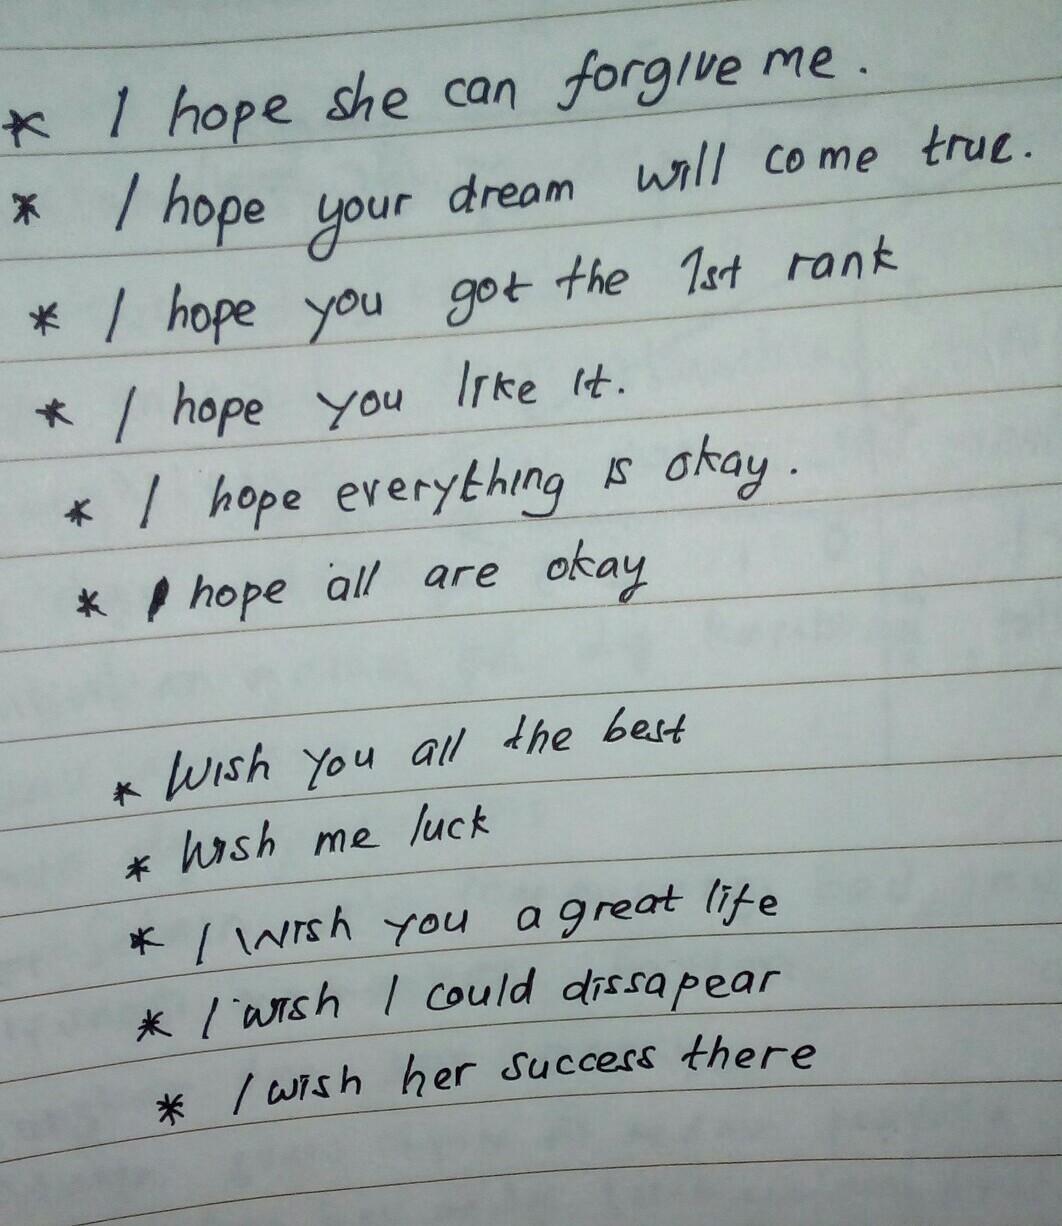 * I hope she can forgive me.
* I hope your dream will come true.
* I hope you got the 1st rank
* I hope you like it.
* I hope everything is okay.
* I hope all are okay
* Wish you all the best
* Wish me luck
* I wish you a great life
* I wish I could dissapear
* I wish her success there